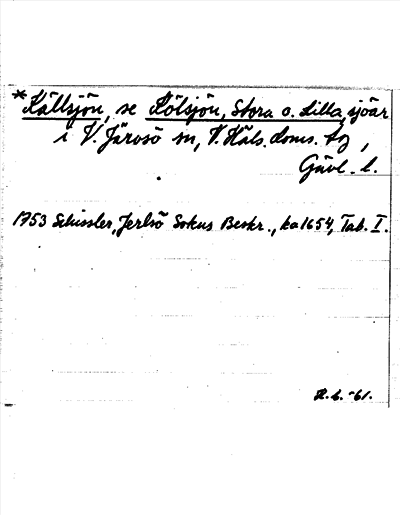 *Källsjön, se Kölsjön, Stora o. Lilla, sjöar
i V. Järvsö sn, V. Häls. doms. tg,
Gävl. l.
1753 Schissler, Jerfsö Sokns Beskr., ka 1654, Tab. I.
R.L. -61.